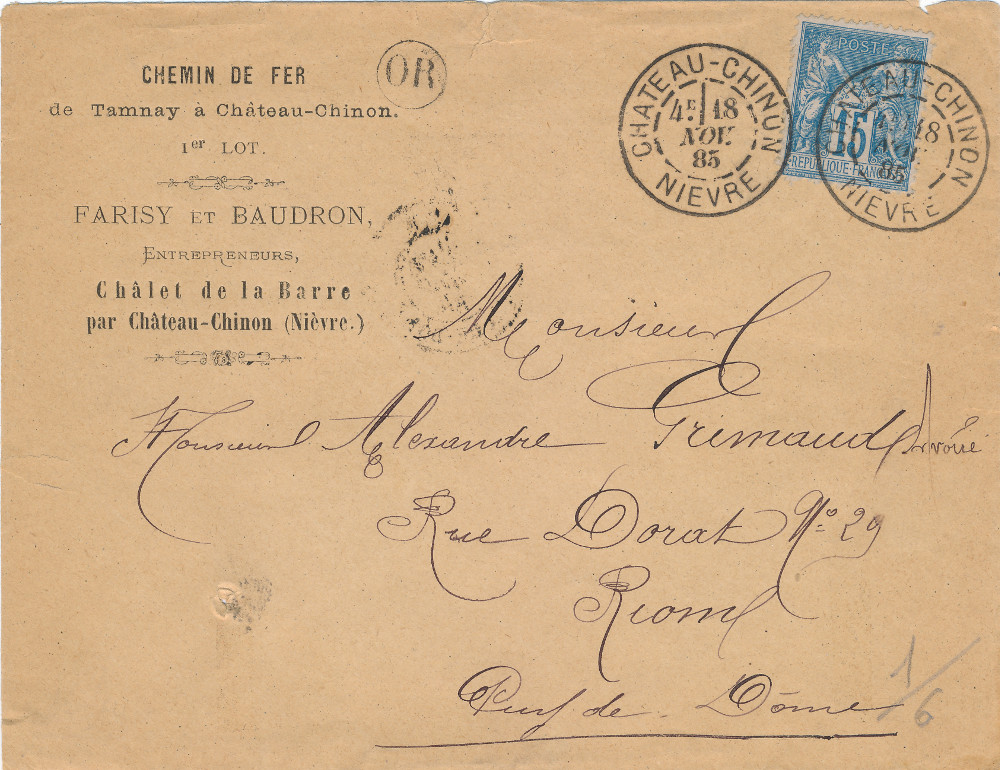 CHEMIN DE FER
de Tamnay à Château-Chinon.
1er LOT.
FARISY ET BAUDRON,
ENTREPRENEURS,
Châlet de la Barre
par Château-Chinon (Nièvre.)
OR
CHATEAU-CHINON
4E 18
NOV.
85
NIEVRE
POSTES
15
REPUBLIQUE-FRANC
CHATEAU-CHINON
18
85
NIEVRE
Monsieur
Monsieur Alexandre Grimaud Avoué
Rue Dorat No. 29
Riom
Puy de Dôme
1/6